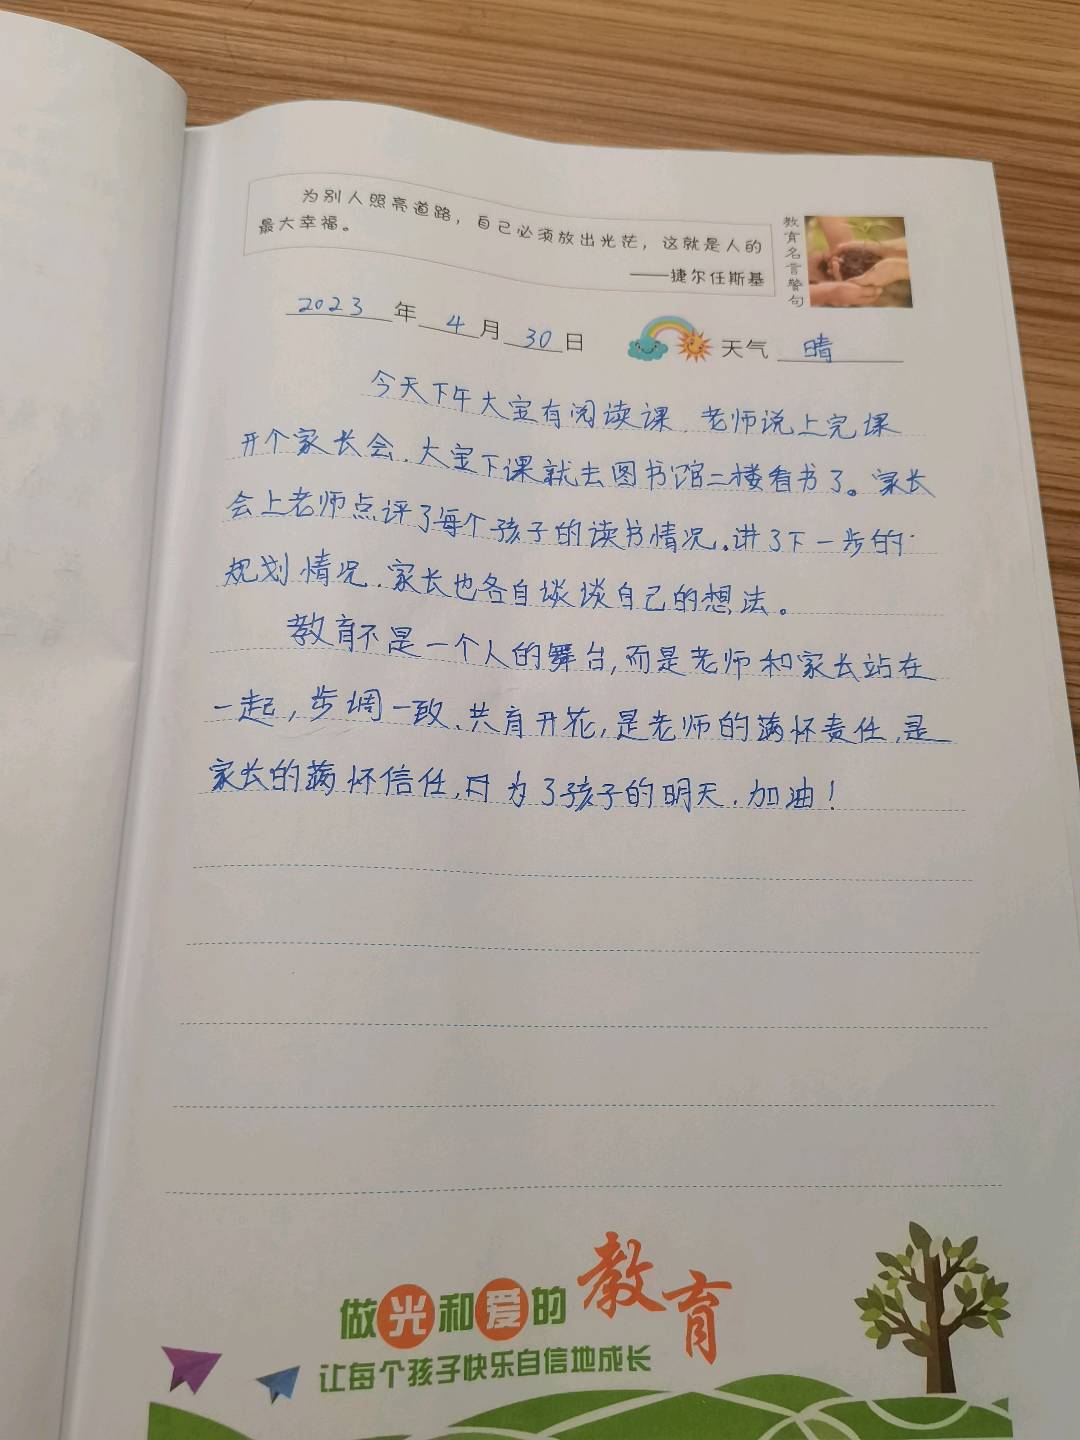 为别人照亮道路，自己必须放出光茫，这就是人的
最大幸福。
——捷尔任斯基
教育名言警句
2023年4月30日 天气 晴
今天下午大宝有阅读课.老师说上完课
开个家长会.大宝下课就去图书馆二楼看书了。家长
会上老师点评了每个孩子的读书情况。讲了下一步的
规划情况.家长也各自谈谈自己的想法。
教育不是一个人的舞台,而是老师和家长站在
一起,步调一致、共育开花,是老师的满怀责任,是
家长的满怀信任,为了孩子的明天.加油!
做光和爱的教育
让每个孩子快乐自信地成长